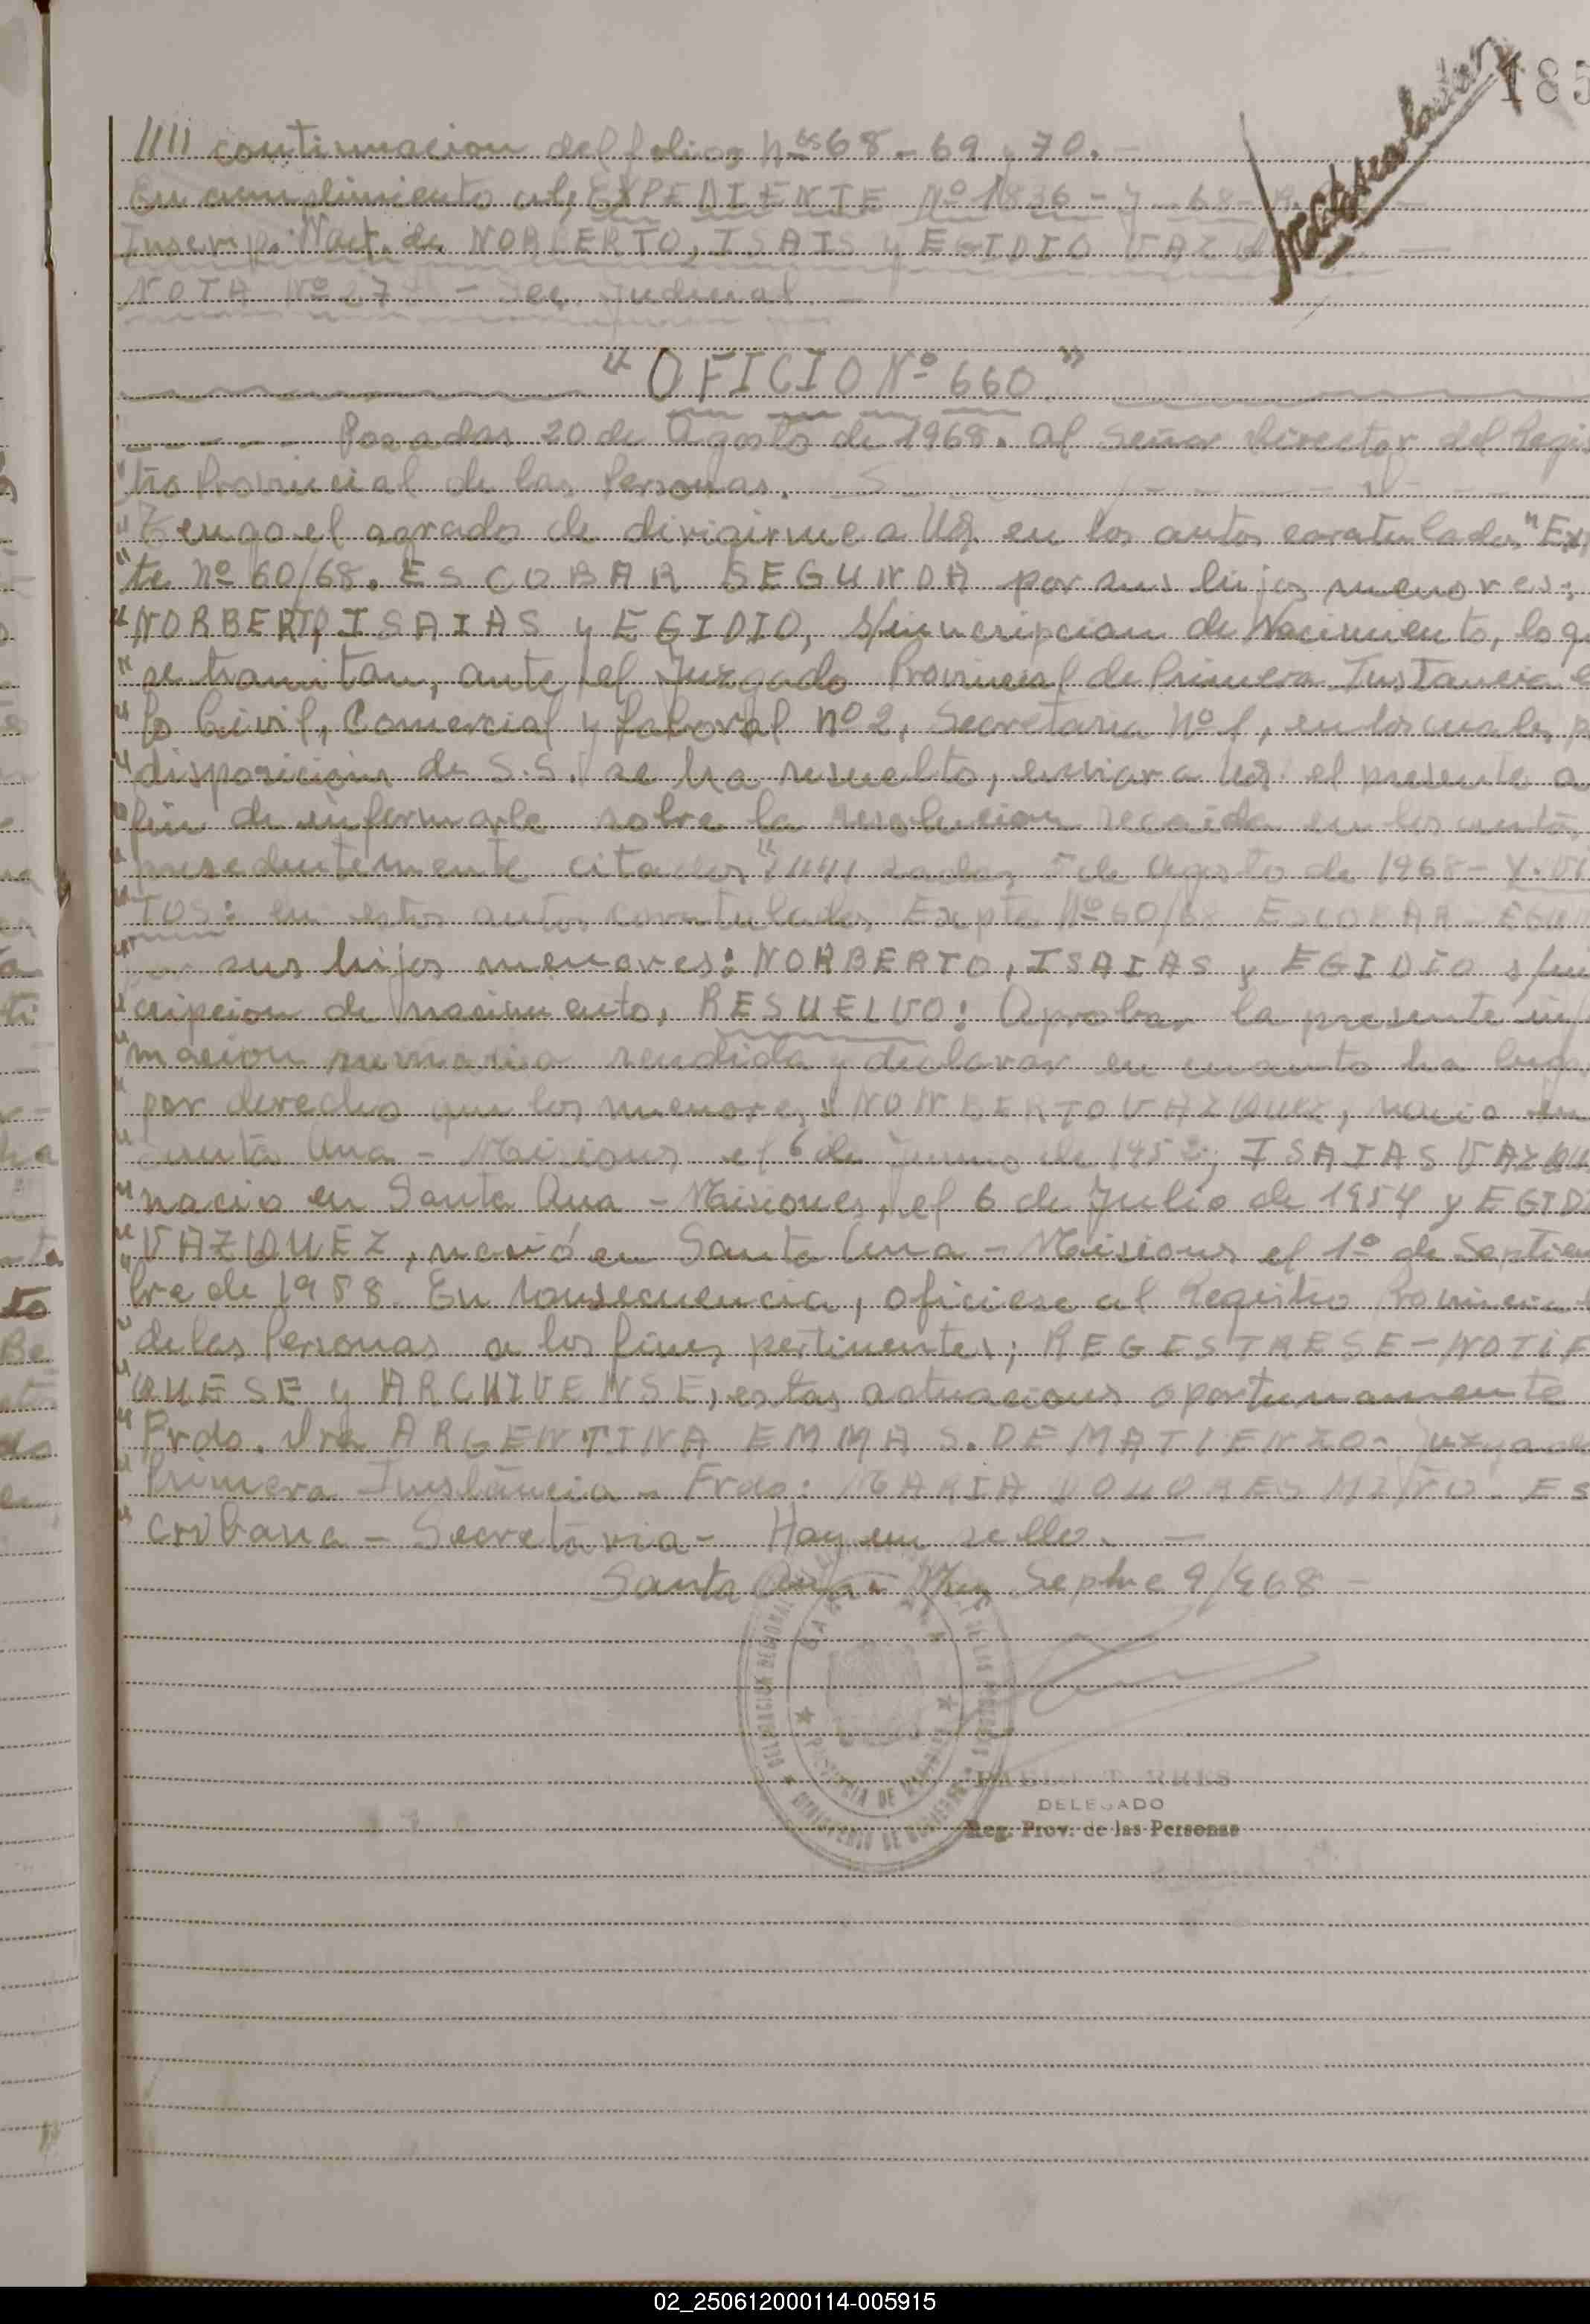 185
//// continuacion del folios Nos 68 - 69 y 70. -
En cumplimiento al, EXPEDIENTE Nº 1836 - J - 68 -
Inscrip. Nact. de NORBERTO, ISAIS y EGIDIO VAZQ
NOTA Nº 27 - Sec. Judicial -
"OFICIO Nº 660"
Posadas 20 de Agosto de 1968. Al Señor Director del Regis
"tro Provincial de las Personas. S
" Tengo el agrado de dirigirme a Ud. en los autos caratulados "Ex
"te Nº 60/68. ESCOBAR SEGUNDA por sus hijos menores:
"NORBERTO, ISAIAS y EGIDIO, s/inscripcion de Nacimiento, lo q
" se tramitan, ante el Juzgado Provincial de Primera Instancia e
" lo Civil, Comercial y Laboral Nº 2, Secretaria Nº 1, en los cuales p
" disposicion de S.S. se ha resuelto, enviar a Ud. el presente a
" fin de informarle sobre la resolucion recaida en los autos
" presedentemente citados" //// sadas, de Agosto de 1968 - Y. VI
" TOS: en estos autos caratulados Expte Nº 60/68 ESCOBAR EGUN
" por sus hijos menores: NORBERTO, ISAIAS y EGIDIO s/in
" cripcion de nacimiento, RESUELVO: Aprobar la presente inf
" macion sumaria rendida y declarar en cuanto ha luga
" por derecho que los menores: NORBERTO VAZQUEZ, nacio en
" Santa Ana - Misiones el 6 de Junio de 195 ; ISAIAS VAZQU
" nacio en Santa Ana - Misiones, el 6 de Julio de 1954 y EGID
" VAZQUEZ, nació en Santa Ana - Misiones el 1º de Septiem
" bre de 1958. En consecuencia, oficiese al Registro Provincial
" de las Personas a los fines pertinentes; REGISTRESE - NOTIF
" QUESE y ARCHIVENSE, estas actuaciones oportunamente
" Frdo. Dra ARGENTINA EMMA S. DE MATIENZO - Juzgado
" Primera Instancia - Frdo: MARIA DOLORES MIÑO - Es
" cribana - Secretaria - Hay un sello. -
Santa Ana - Mnes Sepbre 9/968 -
DELEGACION REGIONAL
DE LAS PERSONAS
SANTA ANA
PROVINCIA DE MISIONES
MINISTERIO DE GOBIERNO
PABLO TORRES
DELEGADO
Reg. Prov. de las Personas
02_250612000114-005915